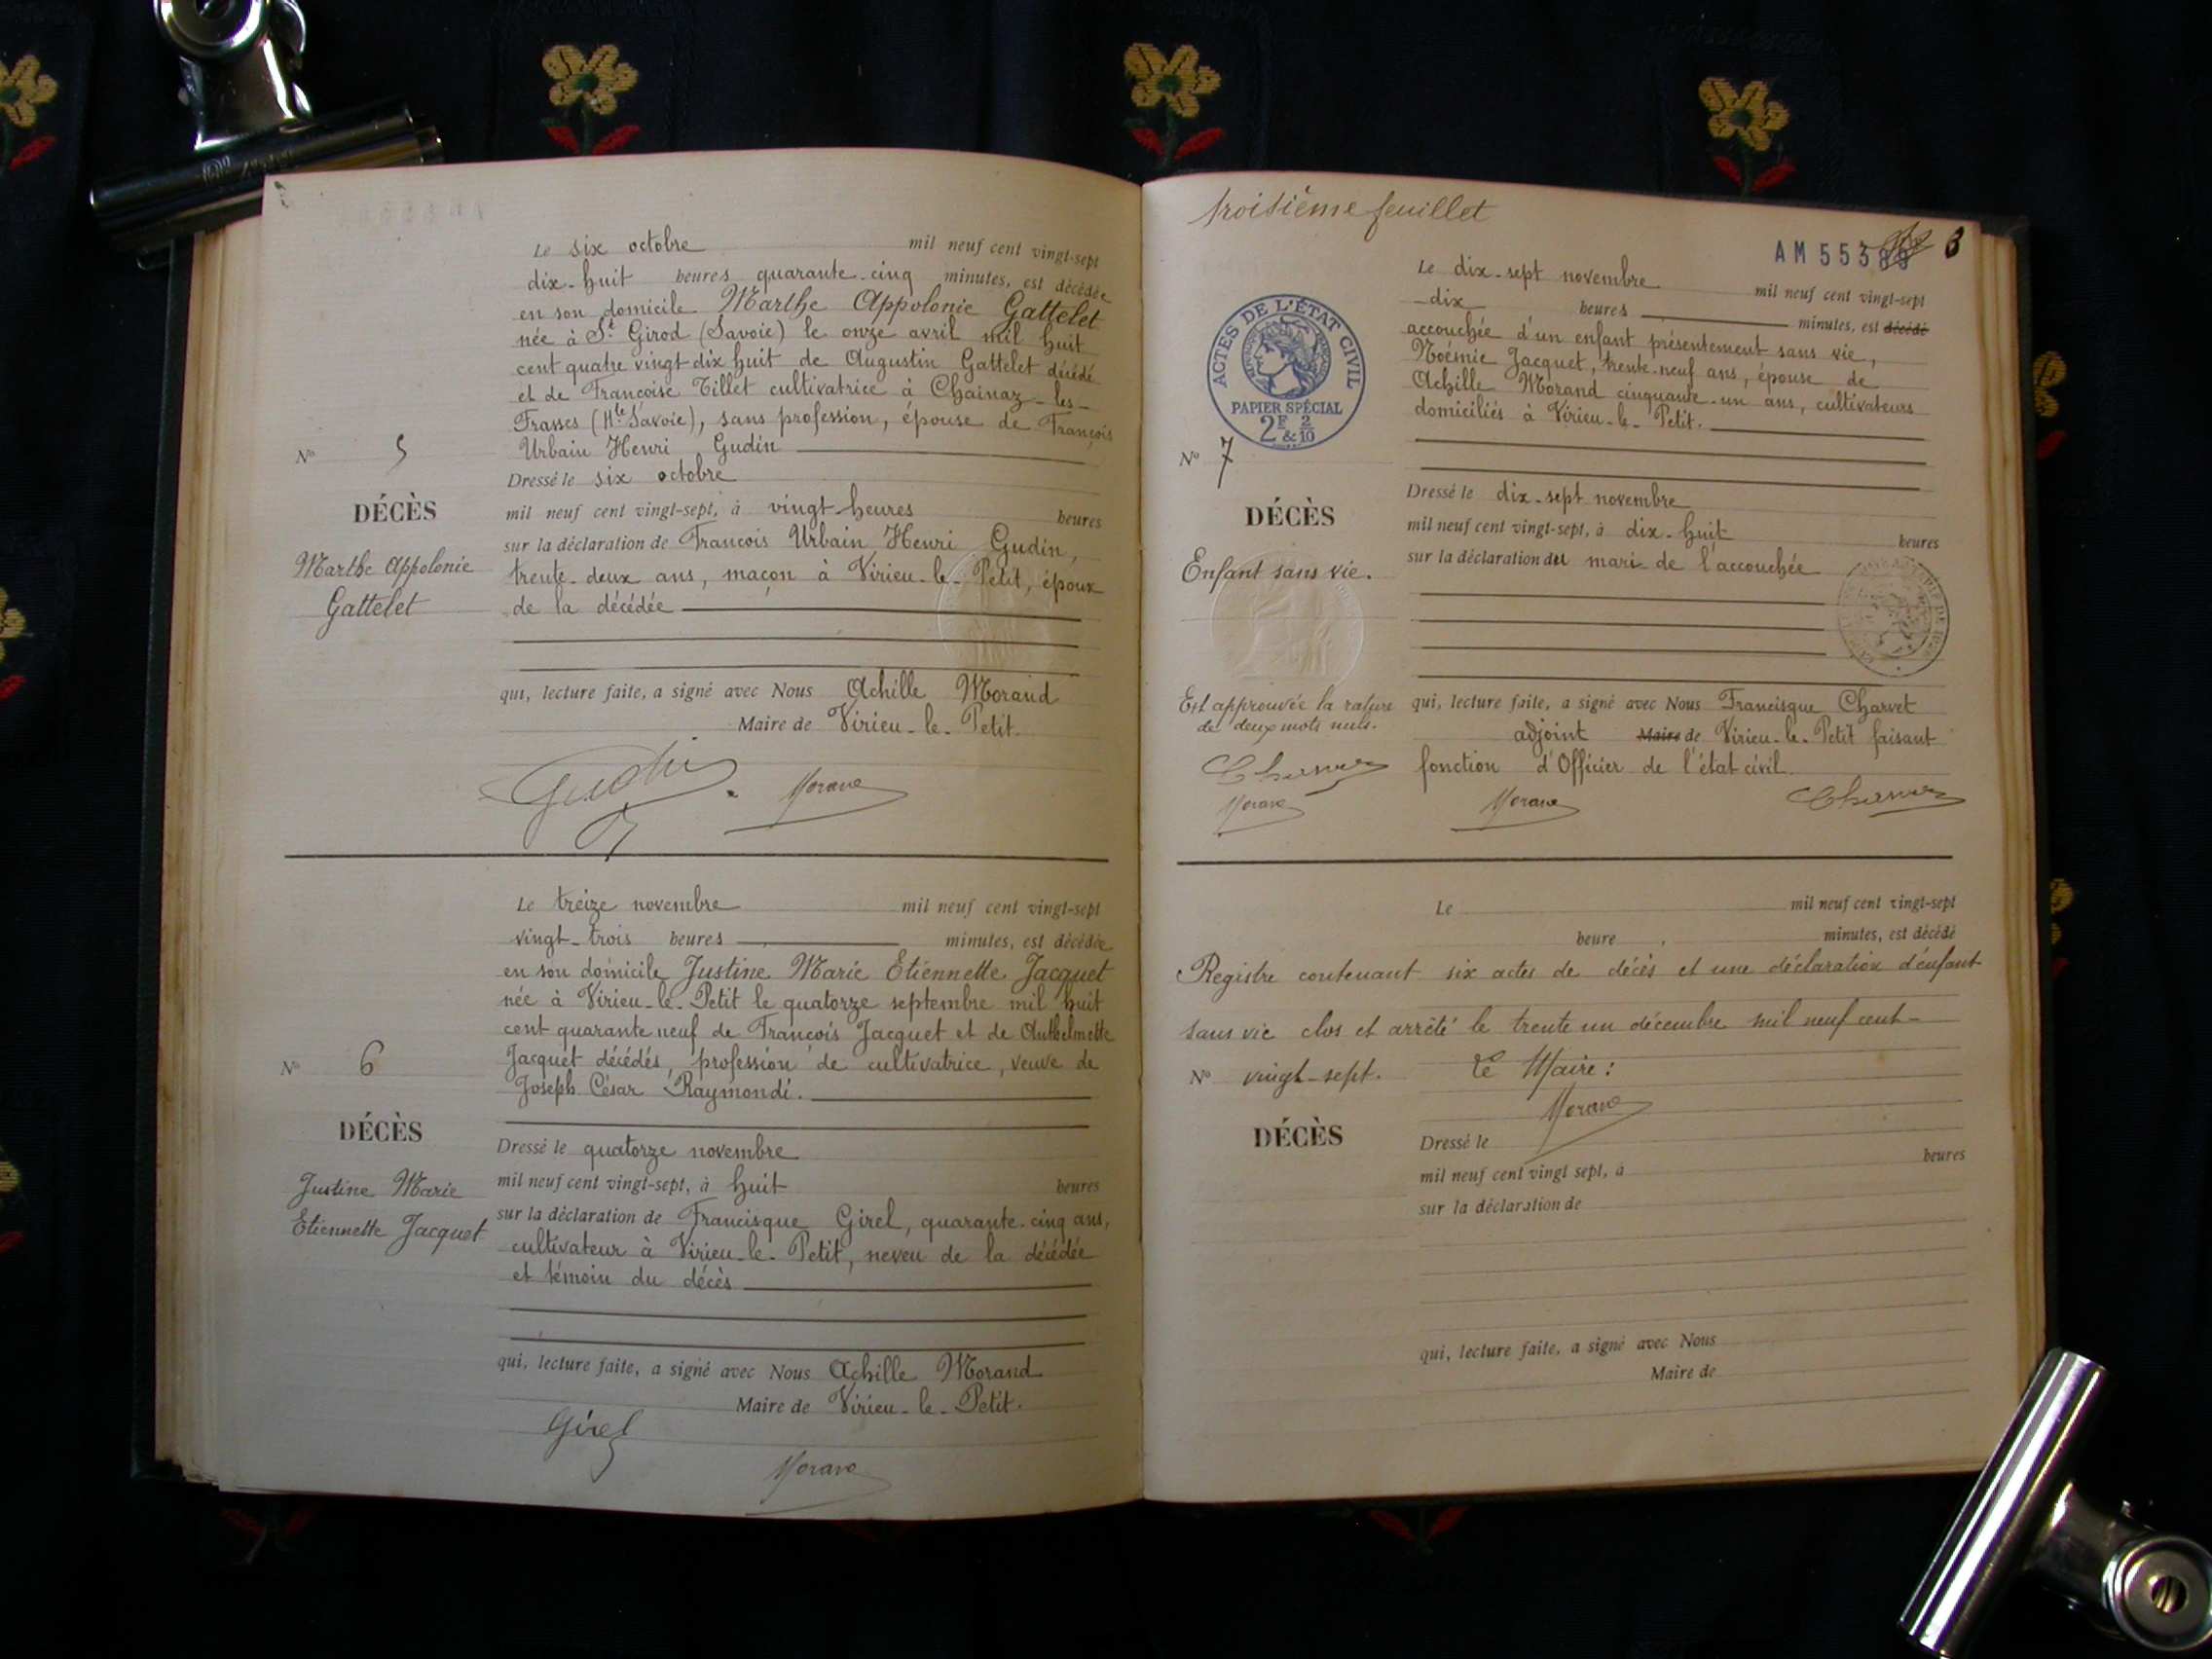 Le six octobre mil neuf cent vingt-sept
dix-huit heures quarante-cinq minutes, est décédée
en son domicile Marthe Appolonie Gattelet
née à St Girod (Savoie) le onze avril mil huit
cent quatre vingt dix huit de Augustin Gattelet décédé
et de Françoise Tillet cultivatrice à Chainaz-les-
Frasses (Hte Savoie), sans profession, épouse de François
Urbain Henri Gudin
Dressé le six octobre
mil neuf cent vingt-sept, à vingt heures heures
sur la déclaration de François Urbain Henri Gudin,
trente-deux ans, maçon à Virieu-le-Petit, époux
de la décédée
qui, lecture faite, a signé avec Nous Achille Morand
Maire de Virieu-le-Petit.
Gudin Morand
No 5
DÉCÈS
Marthe Appolonie
Gattelet
Le treize novembre mil neuf cent vingt-sept
vingt-trois heures minutes, est décédée
en son domicile Justine Marie Etiennette Jacquet
née à Virieu-le-Petit le quatorze septembre mil huit
cent quarante neuf de François Jacquet et de Anthelmette
Jacquet décédés, profession de cultivatrice, veuve de
Joseph César Raymondi.
Dressé le quatorze novembre
mil neuf cent vingt-sept, à huit heures
sur la déclaration de Francisque Girel, quarante-cinq ans,
cultivateur à Virieu-le-Petit, neveu de la décédée
et témoin du décès
qui, lecture faite, a signé avec Nous Achille Morand
Maire de Virieu-le-Petit.
Girel
Morand
No 6
DÉCÈS
Justine Marie
Etiennette Jacquet
troisième feuillet
AM 553 3
ACTES DE L'ÉTAT CIVIL
PAPIER SPÉCIAL
2F & 2/10
Le dix-sept novembre mil neuf cent vingt-sept
dix heures minutes, est décédé
accouchée d'un enfant présentement sans vie,
Noémie Jacquet, trente-neuf ans, épouse de
Achille Morand cinquante-un ans, cultivateurs
domiciliés à Virieu-le-Petit.
Dressé le dix-sept novembre
mil neuf cent vingt-sept, à dix-huit heures
sur la déclaration du mari de l'accouchée
qui, lecture faite, a signé avec Nous Francisque Charvet
adjoint Maire de Virieu-le-Petit faisant
fonction d'Officier de l'état civil.
Morand Charvet
No 7
DÉCÈS
Enfant sans vie.
Est approuvée la rature
de deux mots nuls.
Charvet
Morand
Le mil neuf cent vingt-sept
heure minutes, est décédé
Registre contenant six actes de décès et une déclaration d'enfant
sans vie clos et arrêté le trente un décembre mil neuf cent-
No vingt-sept. Le Maire:
Morand
DÉCÈS
Dressé le
mil neuf cent vingt sept, à heures
sur la déclaration de
qui, lecture faite, a signé avec Nous
Maire de